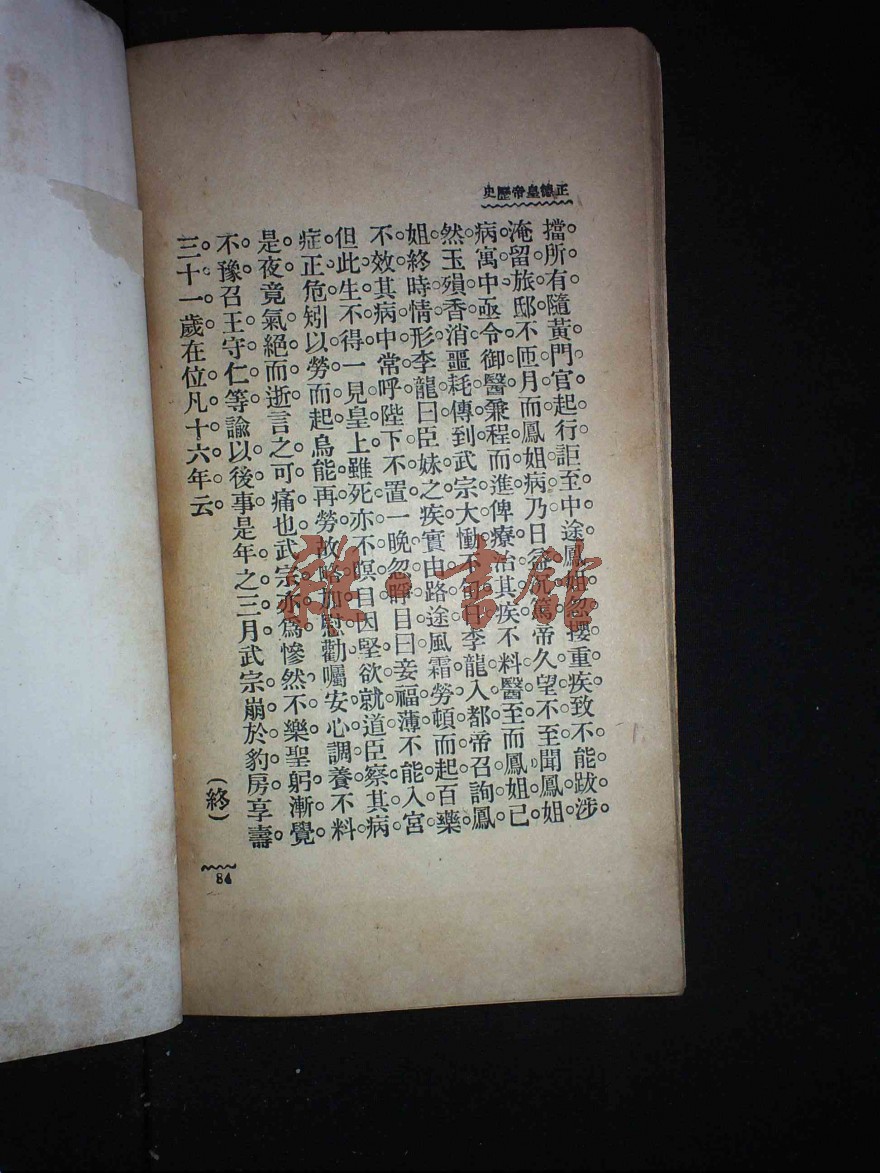 正德皇帝歷史
擋。所有隨黃門官起行。詎至中途。鳳姐忽攖重疾。致不能跋涉。
淹留旅邸。不匝月而鳳姐病乃日益沉篤。帝久望不至。聞鳳姐
病寓中。亟令御醫兼程而進。俾療治其疾。不料醫至而鳳姐已
然玉殞香消。噩耗傳到。武宗大慟不
李龍入都。帝召詢鳳
姐終時情形。李龍曰。臣妹之疾。實由路途風霜勞頓而起。百藥
不效。其病中常呼陛下不置。一晚忽睜目曰。妾福薄不能入宮。
但此生不得一見皇上。雖死亦不瞑目。因堅欲就道。臣察其病
症正危。矧以勞而起。烏能再勞。故略加慰勸。囑安心調養。不料
是夜竟氣絕而逝。言之可痛也。武宗亦爲慘然不樂。聖躬漸覺
不豫。召王守仁等諭以後事。是年之三月。武宗崩於豹房。享壽
三十一歲。在位凡十六年云。
(終)
84
雅书馆